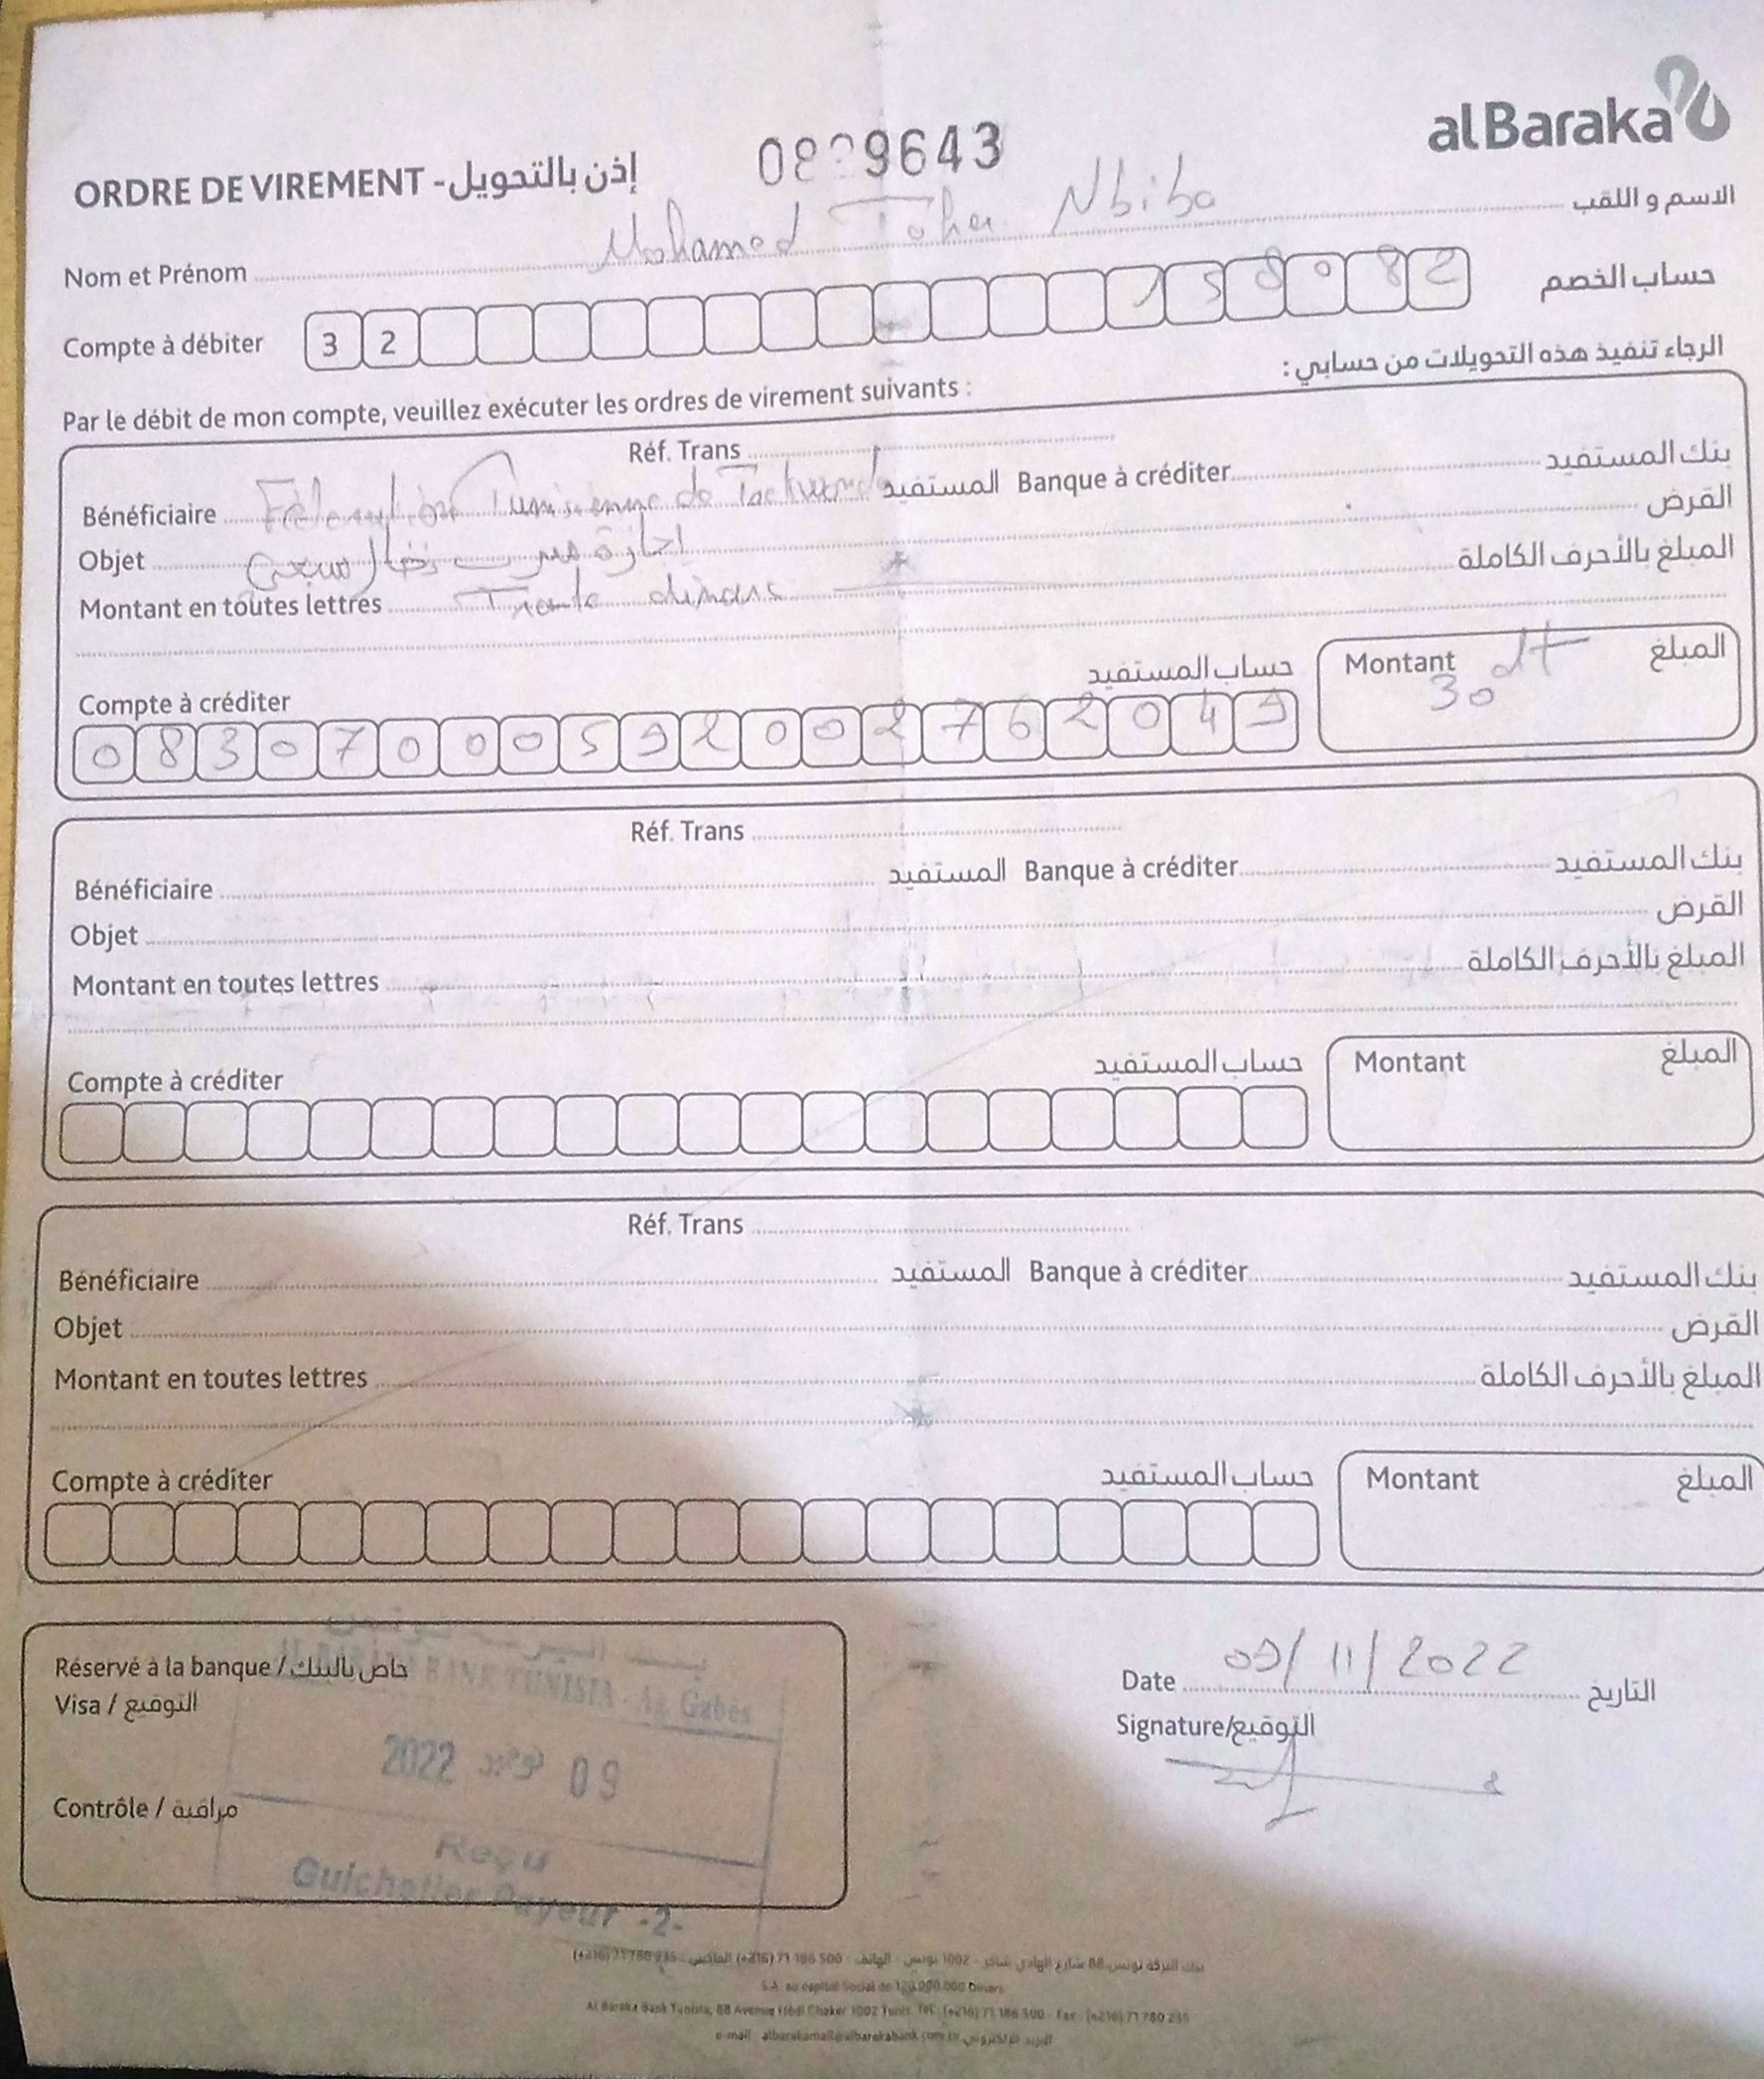 al Baraka
ORDRE DE VIREMENT - إذن بالتحويل
9643
Nom et Prénom Mohamed Taher Nbiba الاسم و اللقب
Compte à débiter 3 2 1 5 8 0 8 2 حساب الخصم
Par le débit de mon compte, veuillez exécuter les ordres de virement suivants : الرجاء تنفيذ هذه التحويلات من حسابي :
Réf. Trans
Bénéficiaire Tunisienne de المستفيد Banque à créditer بنك المستفيد
Objet اجازة القرض
Montant en toutes lettres Trente dinars المبلغ بالأحرف الكاملة
Compte à créditer حساب المستفيد Montant 30 dt المبلغ
0 8 3 0 7 0 0 0 5 9 2 0 0 2 7 6 2 0 4 9
Réf. Trans
Bénéficiaire المستفيد Banque à créditer بنك المستفيد
Objet القرض
Montant en toutes lettres المبلغ بالأحرف الكاملة
Compte à créditer حساب المستفيد Montant المبلغ
Réf. Trans
Bénéficiaire المستفيد Banque à créditer بنك المستفيد
Objet القرض
Montant en toutes lettres المبلغ بالأحرف الكاملة
Compte à créditer حساب المستفيد Montant المبلغ
Réservé à la banque / خاص بالبنك
BANK TUNISIA - Ag. Gabes
Visa / التوقيع
09 2022
Contrôle / مراقبة
Reçu
Guichetier Payeur -2-
Date 09/11/2022 التاريخ
Signature/التوقيع
بنك البركة تونس 88 شارع الهادي شاكر - 1002 تونس - الهاتف : 500 186 71 (216+) الفاكس : 235 780 71 (216+)
S.A. au capital Social de 120.000.000 Dinars
Al Baraka Bank Tunisia, 88 Avenue Hédi Chaker 1002 Tunis. Tél: (+216) 71 186 500 - Fax: (+216) 71 780 235
e-mail : albarakamail@albarakabank.com.tn البريد الإلكتروني